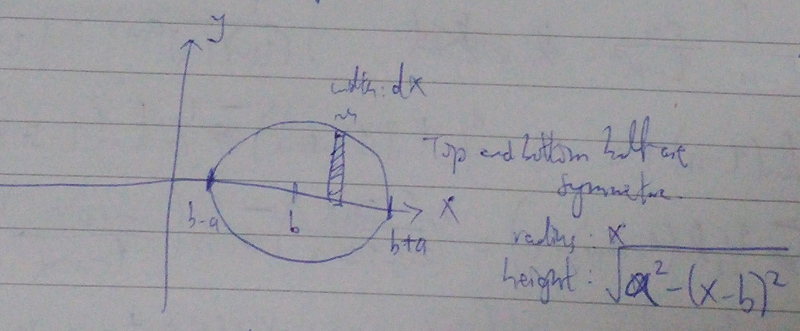 y
width: dx
Top and bottom half are
symmetric.
x
b-a
b
b+a
radius: x
height: √(a²-(x-b)²)